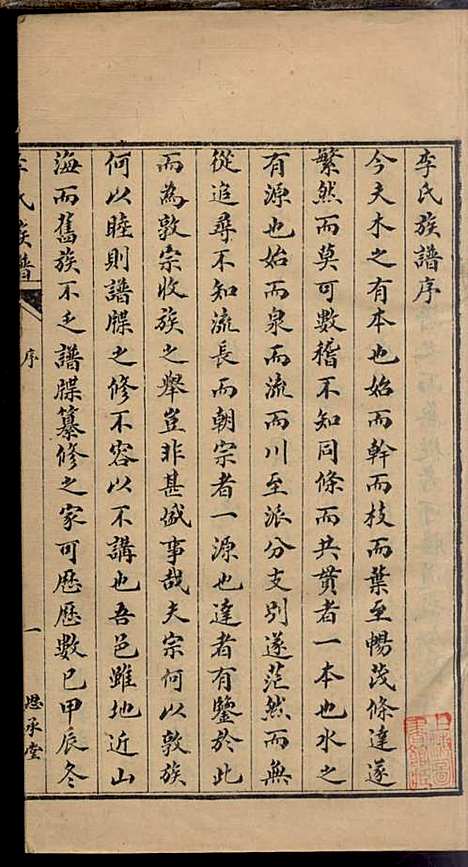 李氏族譜序
今夫木之有本也始而幹而枝而葉至暢茂條達遂
繁然而莫可數稽不知同條而共貫者一本也水之
有源也始而泉而流而川至派分支别遂茫然而無
從追尋不知流長而朝宗者一源也達者有鑒於此
而為敦宗收族之舉豈非甚盛事哉夫宗何以敦族
何以睦則譜牒之修不容以不講也吾邑雖地近山
海而舊族不乏譜牒纂修之家可歷歷數已甲辰冬
李氏族譜
序
一
思承堂